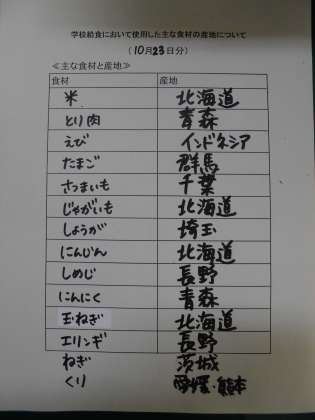 学校給食において使用した主な食材の産地について
(10月23日分)
≪主な食材と産地≫
食材 産地
米 北海道
とり肉 青森
えび インドネシア
たまご 群馬
さつまいも 千葉
じゃがいも 北海道
しょうが 埼玉
にんじん 北海道
しめじ 長野
にんにく 青森
玉ねぎ 北海道
エリンギ 長野
ねぎ 茨城
くり 愛媛・熊本